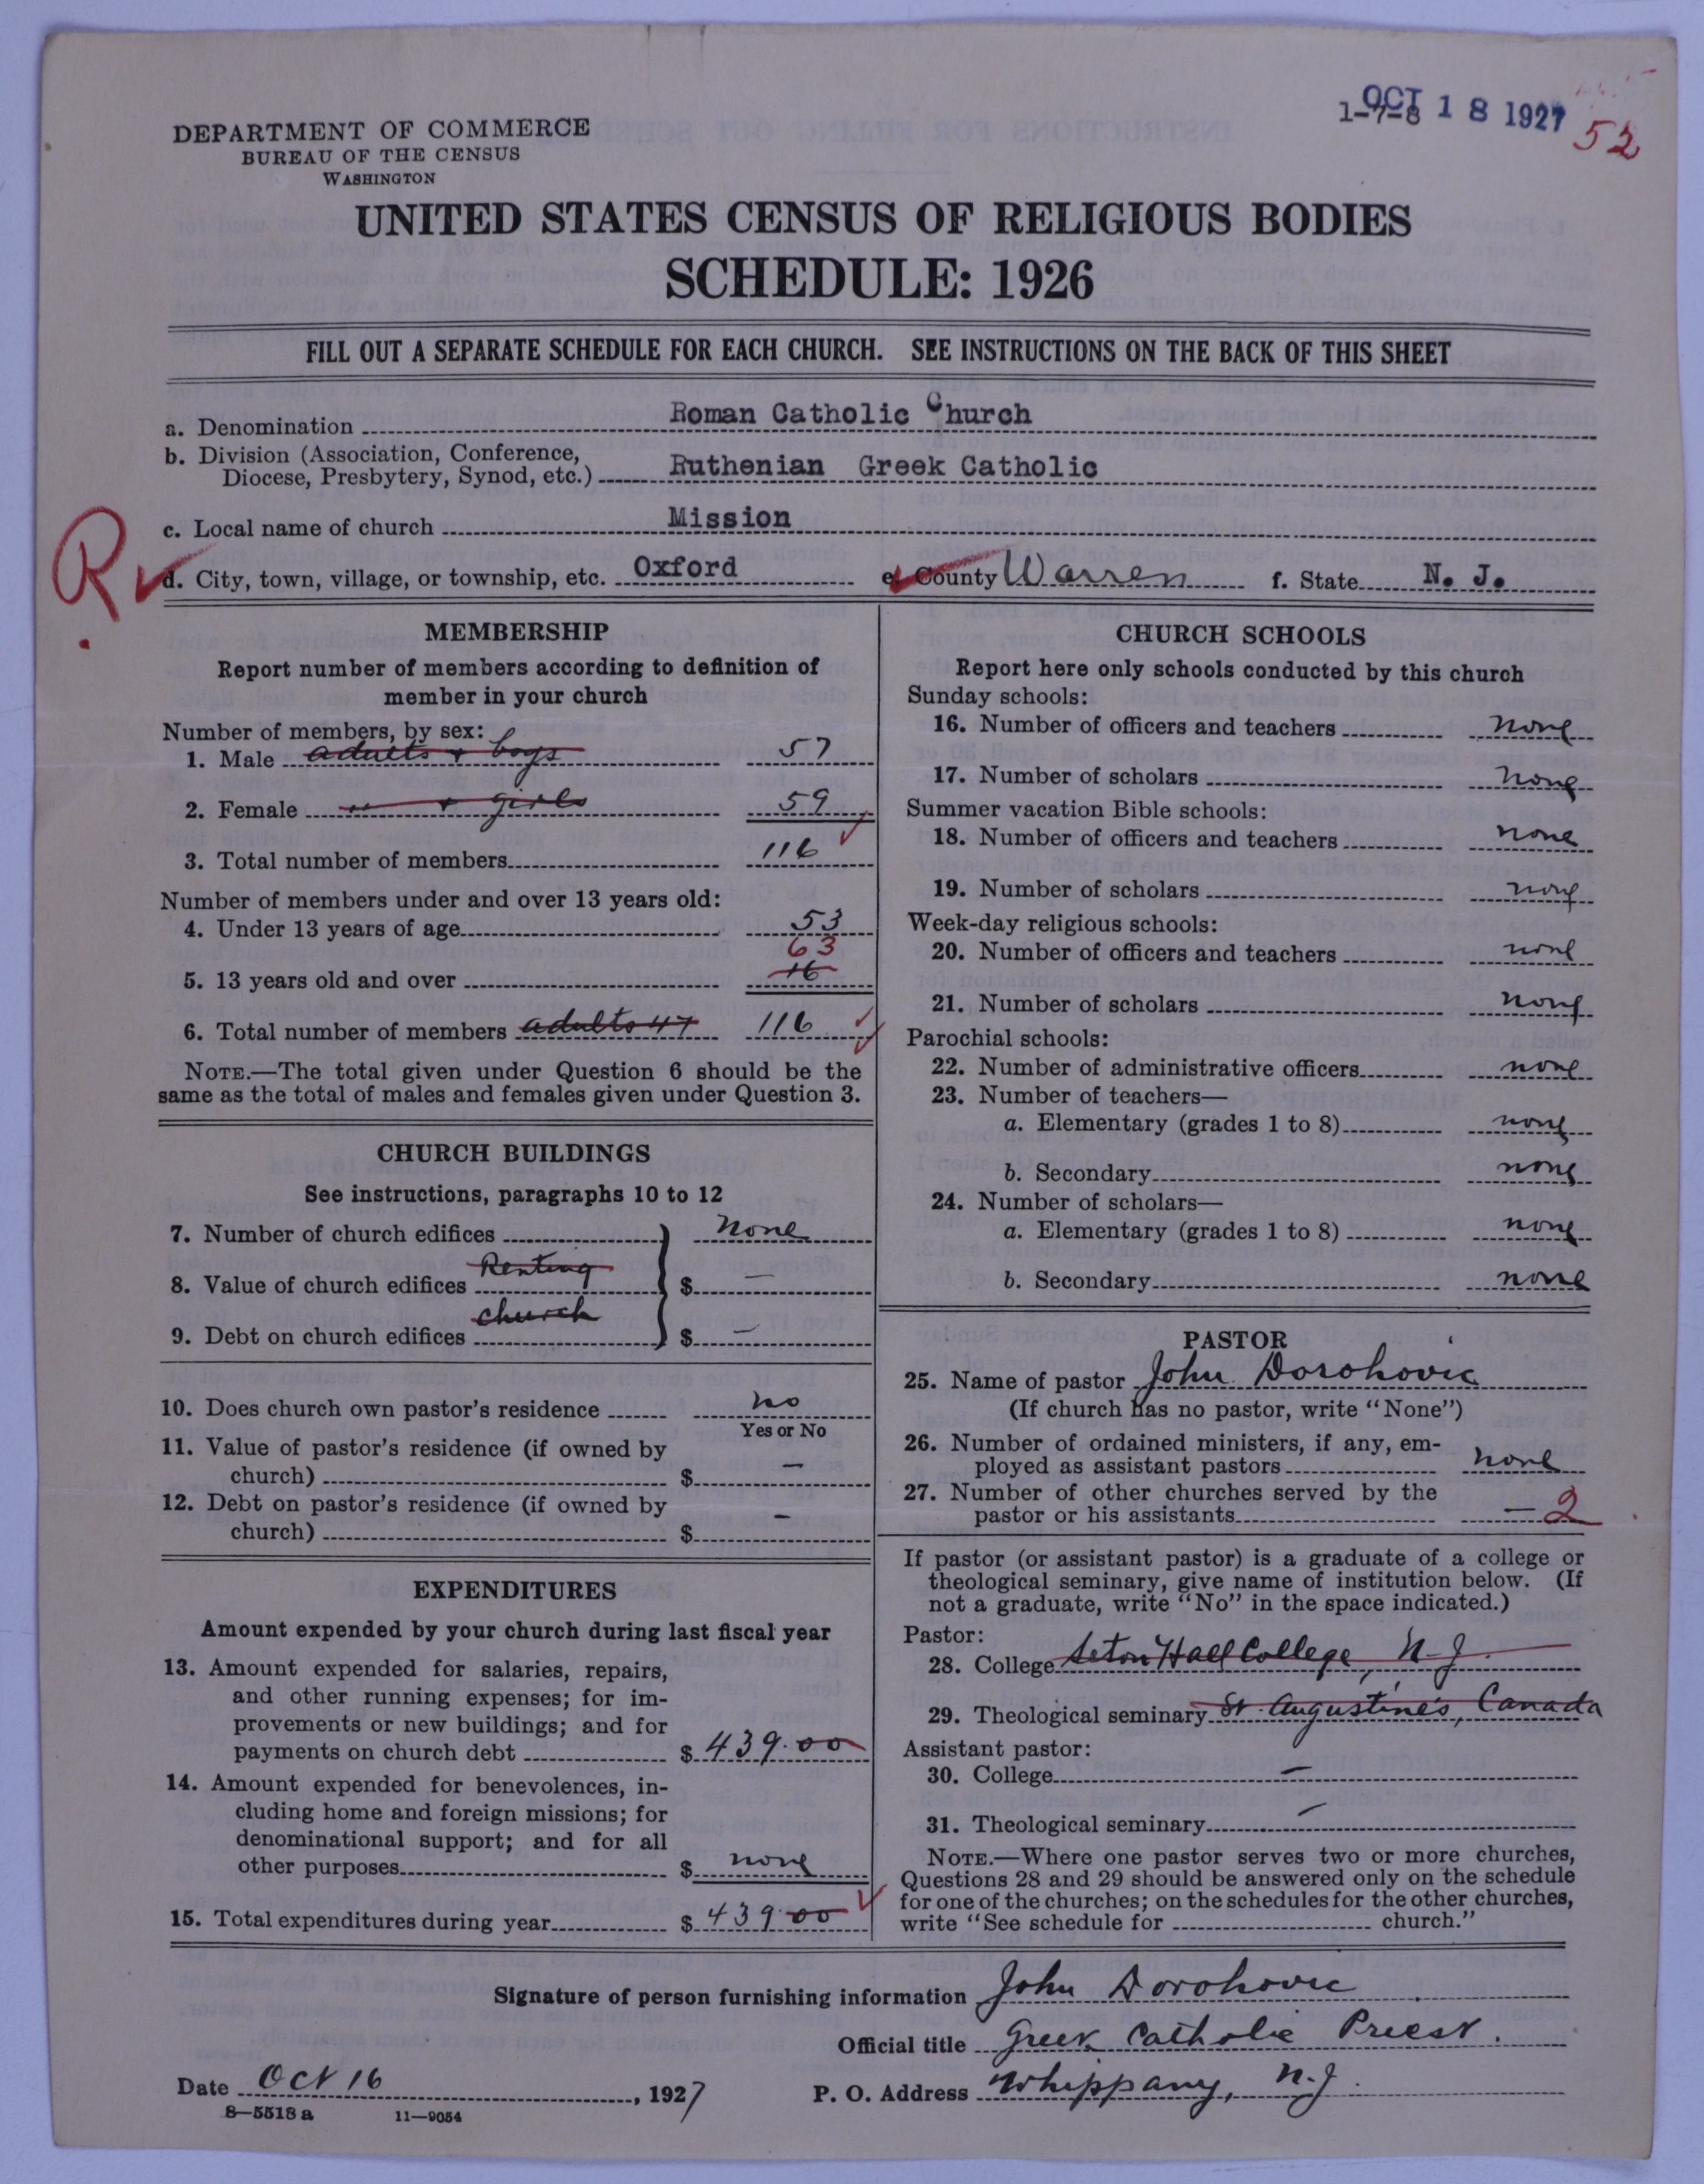 1-7-8 OCT 18 1927
52
DEPARTMENT OF COMMERCE
BUREAU OF THE CENSUS
WASHINGTON
UNITED STATES CENSUS OF RELIGIOUS BODIES
SCHEDULE: 1926
FILL OUT A SEPARATE SCHEDULE FOR EACH CHURCH. SEE INSTRUCTIONS ON THE BACK OF THIS SHEET
a. Denomination Roman Catholic Church
b. Division (Association, Conference,
Diocese, Presbytery, Synod, etc.) Ruthenian Greek Catholic
c. Local name of church Mission
R
d. City, town, village, or township, etc. Oxford e. County Warren f. State N. J.
MEMBERSHIP
Report number of members according to definition of
member in your church
Number of members, by sex:
1. Male adults + boys 57
2. Female " + girls 59
3. Total number of members 116
Number of members under and over 13 years old:
4. Under 13 years of age 53
63
5. 13 years old and over 16
6. Total number of members adults 47 116
NOTE.—The total given under Question 6 should be the
same as the total of males and females given under Question 3.
CHURCH BUILDINGS
See instructions, paragraphs 10 to 12
7. Number of church edifices none
8. Value of church edifices Renting $ —
9. Debt on church edifices church $ —
10. Does church own pastor's residence no
Yes or No
11. Value of pastor's residence (if owned by
church) $ —
12. Debt on pastor's residence (if owned by
church) $ —
EXPENDITURES
Amount expended by your church during last fiscal year
13. Amount expended for salaries, repairs,
and other running expenses; for im-
provements or new buildings; and for
payments on church debt $ 439.00
14. Amount expended for benevolences, in-
cluding home and foreign missions; for
denominational support; and for all
other purposes $ none
15. Total expenditures during year $ 439.00
CHURCH SCHOOLS
Report here only schools conducted by this church
Sunday schools:
16. Number of officers and teachers none
17. Number of scholars none
Summer vacation Bible schools:
18. Number of officers and teachers none
19. Number of scholars none
Week-day religious schools:
20. Number of officers and teachers none
21. Number of scholars none
Parochial schools:
22. Number of administrative officers none
23. Number of teachers—
a. Elementary (grades 1 to 8) none
b. Secondary none
24. Number of scholars—
a. Elementary (grades 1 to 8) none
b. Secondary none
PASTOR
25. Name of pastor John Dorohovic
(If church has no pastor, write "None")
26. Number of ordained ministers, if any, em-
ployed as assistant pastors none
27. Number of other churches served by the
pastor or his assistants — 2
If pastor (or assistant pastor) is a graduate of a college or
theological seminary, give name of institution below. (If
not a graduate, write "No" in the space indicated.)
Pastor:
28. College Seton Hall College, N. J.
29. Theological seminary St. Augustine's, Canada
Assistant pastor:
30. College —
31. Theological seminary —
NOTE.—Where one pastor serves two or more churches,
Questions 28 and 29 should be answered only on the schedule
for one of the churches; on the schedules for the other churches,
write "See schedule for church."
Signature of person furnishing information John Dorohovic
Official title Greek Catholic Priest.
Date Oct 16, 1927 P. O. Address Whippany, N. J.
8—5518 a 11—9054